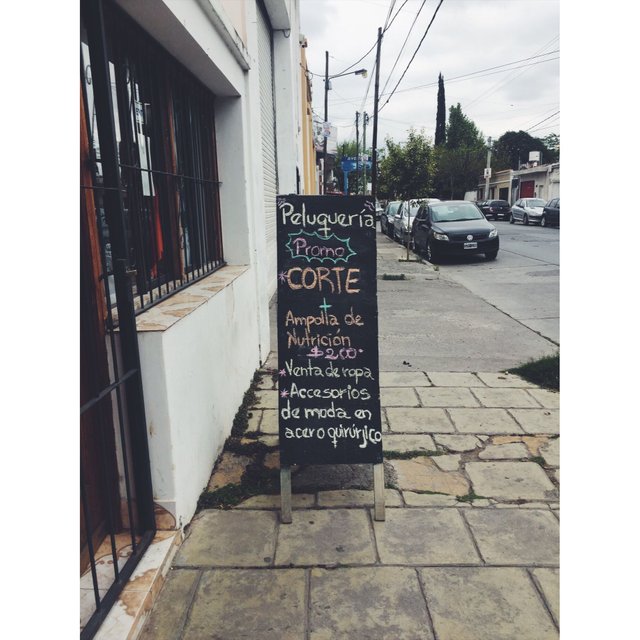 Peluquería
Promo
*CORTE
+
Ampolla de
Nutrición
$200
*Venta de ropa
*Accesorios
de moda en
acero quirúrjco